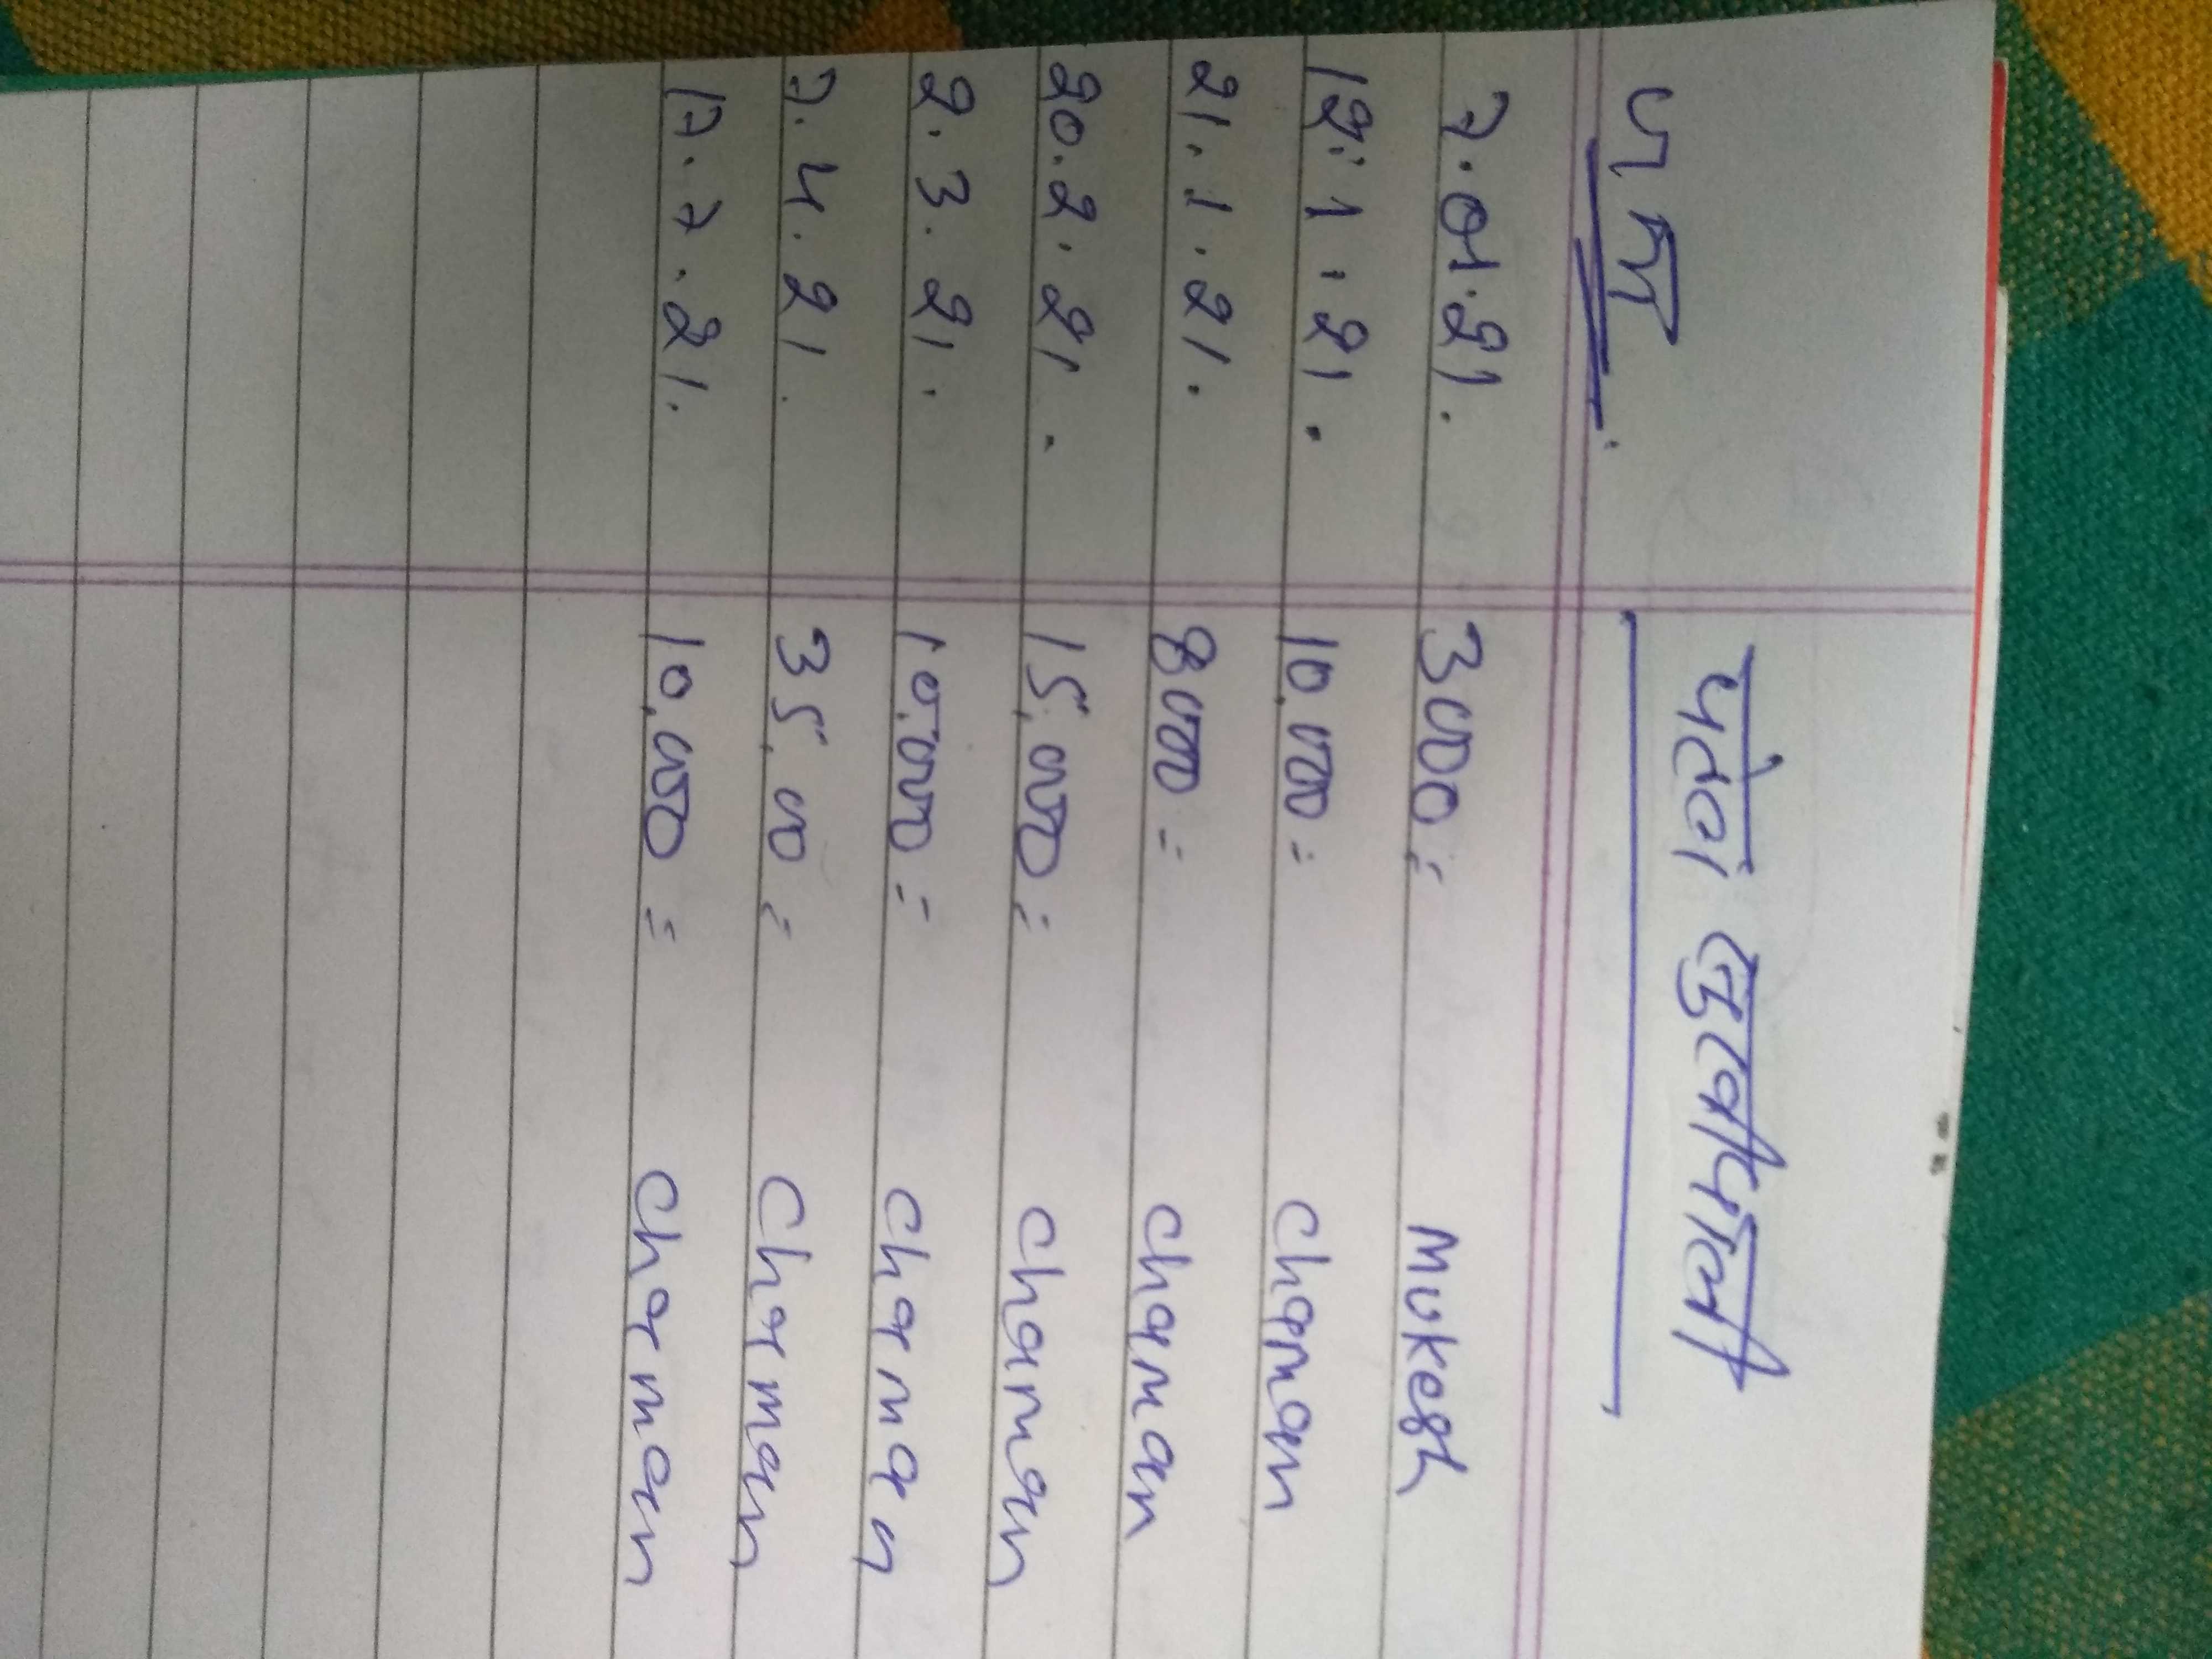 7.01.21. 3000= Mukesh
12.1.21. 10,000= Chaman
21.1.21. 8000= Chaman
20.2.21. 15,000= Chaman
2.3.21. 10,000= Chaman
7.4.21. 35,00= Chaman
17.7.21. 10,000= Chaman